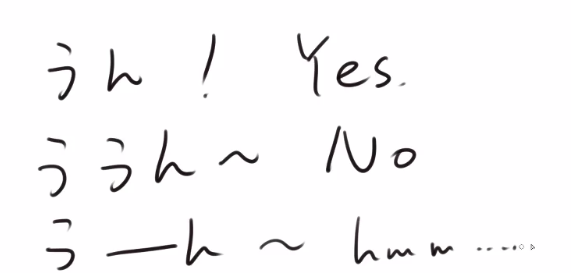 うん! Yes.
ううん~ No
うーん~ hmm.....